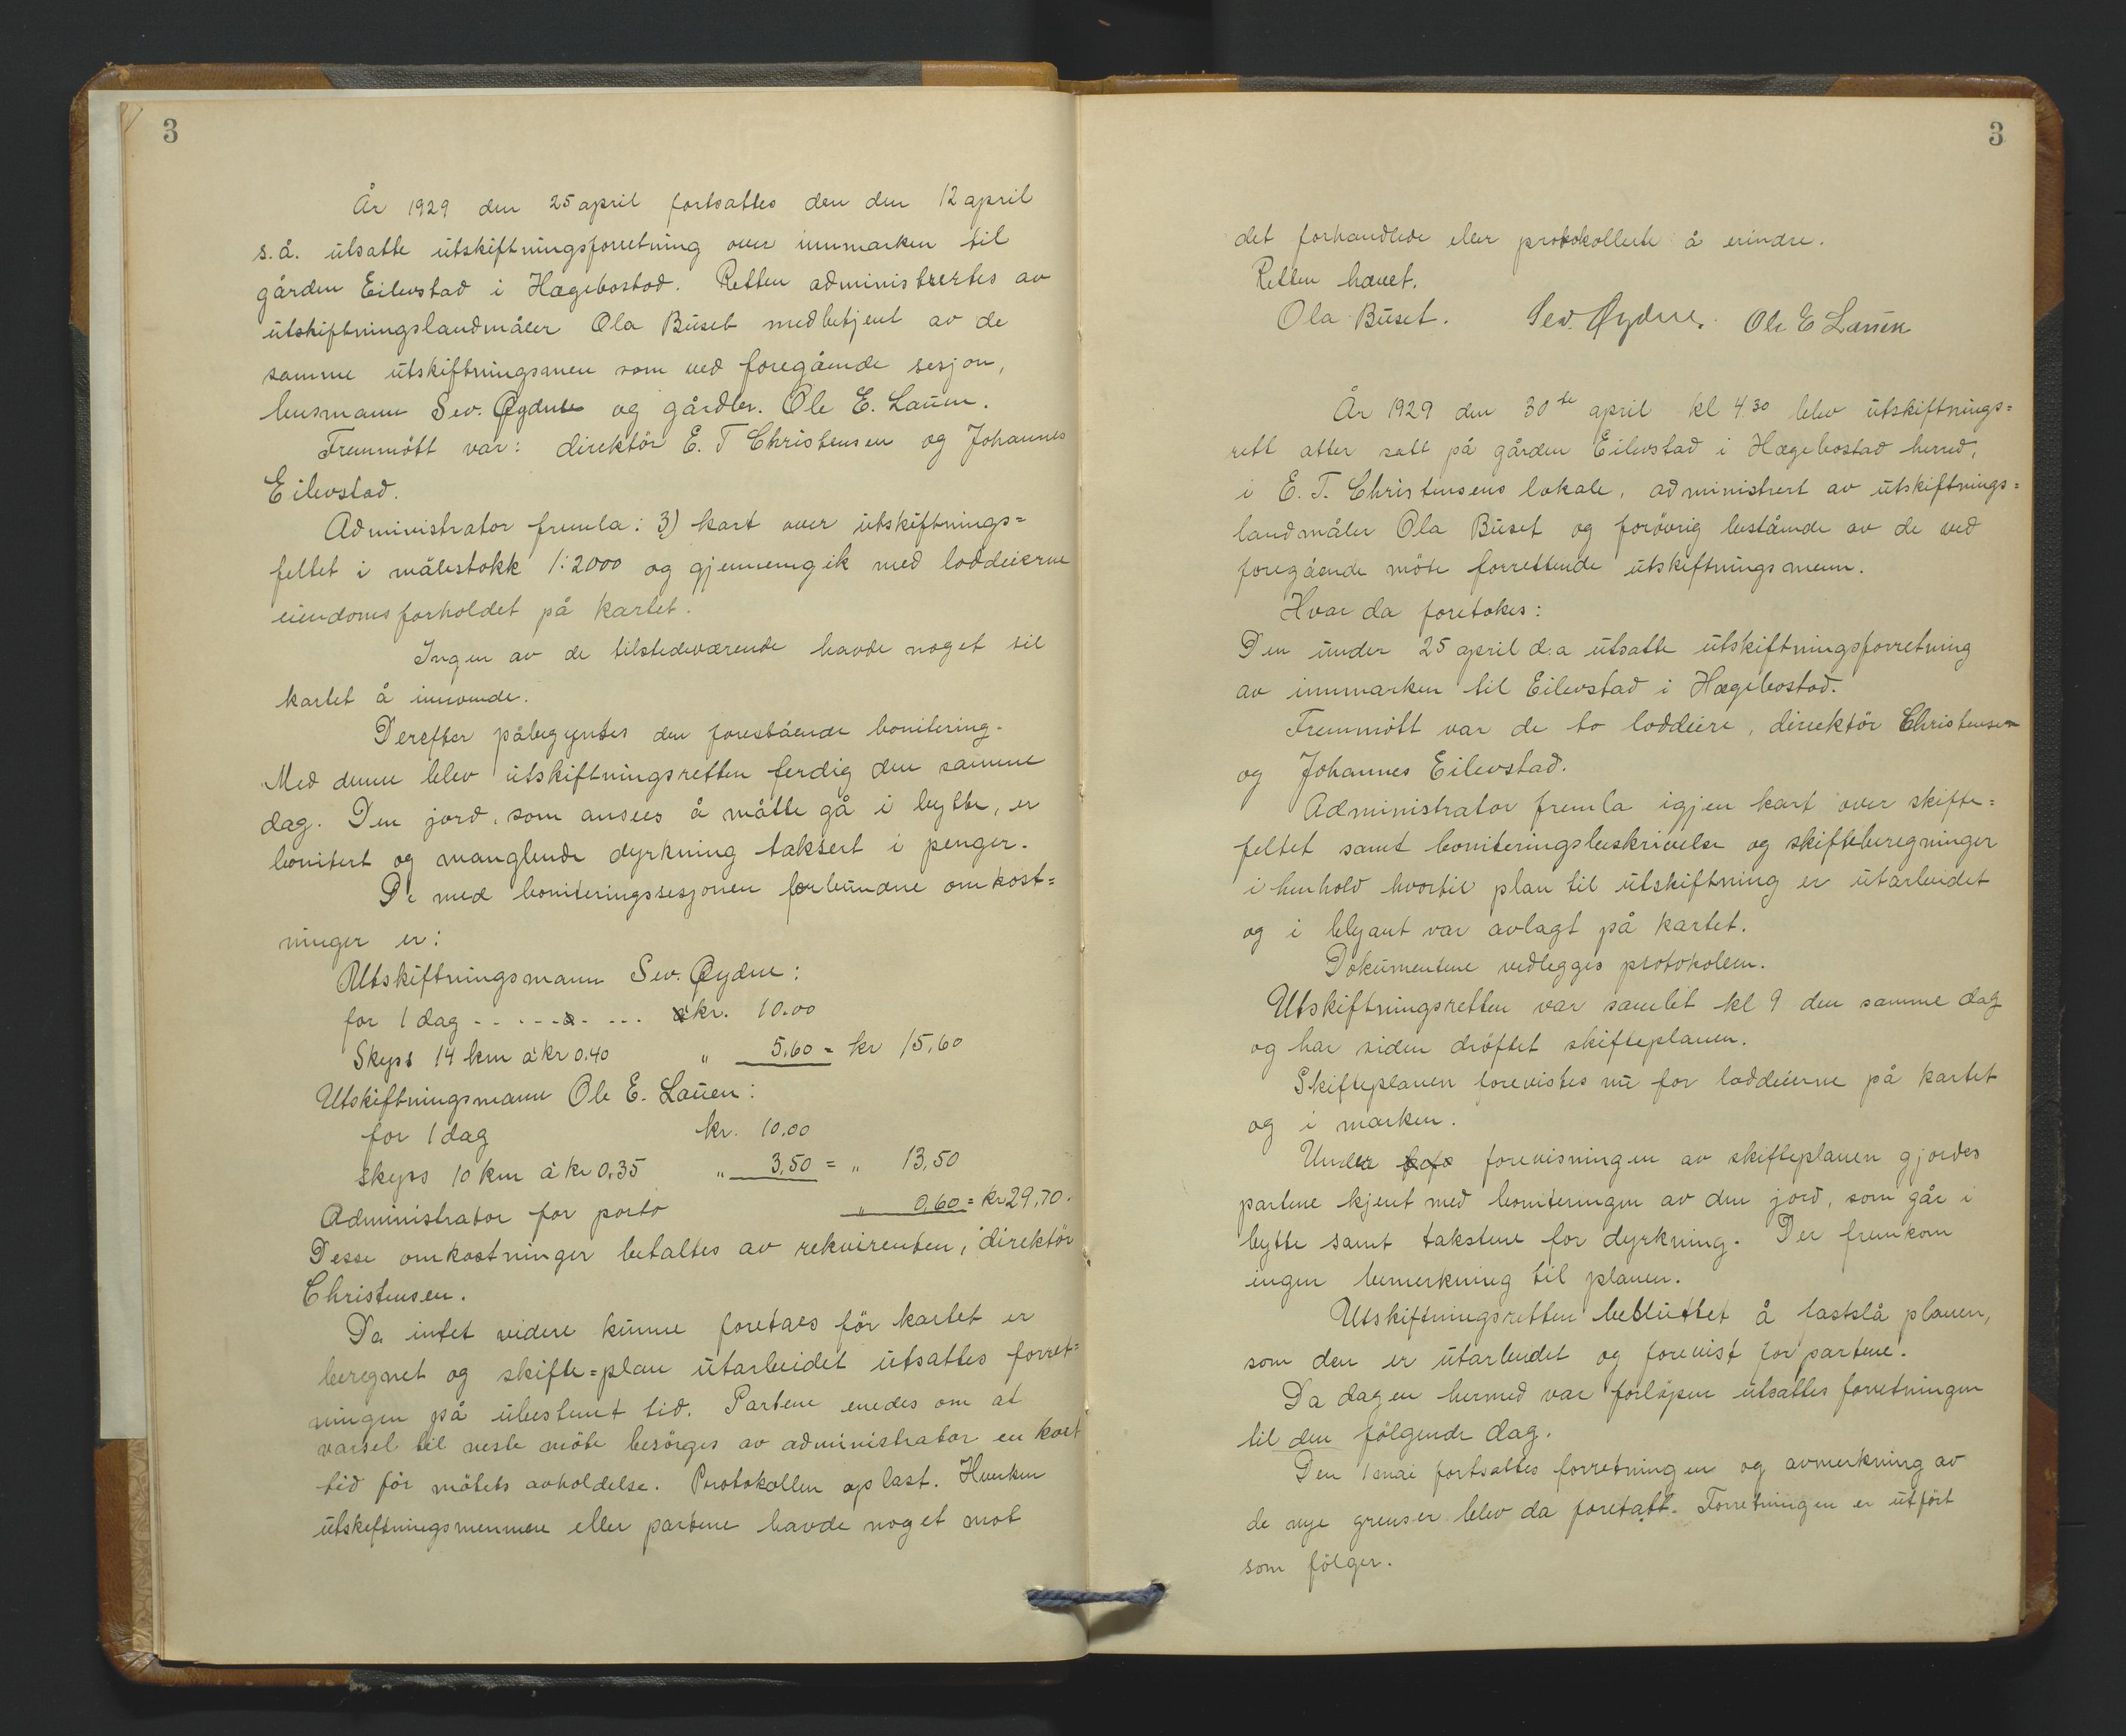 3
År 1929 den 25 april fortsattes den den 12 april
s.å. utsatte utskiftningsforretning over innmarken til
gården Eilevstad i Hægebostad. Retten administrertes av
utskiftningslandmåler Ola Buset medbetjent av de
samme utskiftningsmen som ved foregående sesjon,
lensmann Sev. Øydne og gårdbr. Ole E. Lauen.
Fremmött var: direktör E. T Christensen og Johannes
Eilevstad.
Administrator fremla: 3) kart over utskiftnings=
feltet i målestokk 1:2000 og gjennemgik med loddeierne
eiendomsforholdet på kartet.
Ingen av de tilstedeværende havde noget til
kartet å innvende.
Derefter påbegyntes den forestående bonitering.
Med denne blev utskiftningsretten ferdig den samme
dag. Den jord, som ansees å måtte gå i bytte, er
bonitert og manglende dyrkning taksert i penger.
De med boniteringssesjonen forbundne omkost=
ninger er:
Utskiftningsmann Sev. Øydne:
for 1 dag - - - - - - - - kr. 10.00
Skyss 14 km à kr 0.40 " 5,60 = kr 15,60
Utskiftningsmann Ole E. Lauen:
for 1 dag kr. 10,00
skyss 10 km à kr 0,35 " 3,50 = " 13,50
Administrator for porto " 0,60 = kr 29,70.
Desse omkostninger betaltes av rekvirenten, direktör
Christensen.
Da intet videre kunne foretaes för kartet er
beregnet og skifte=plan utarbeidet utsattes forret=
ningen på ubestemt tid. Partene enedes om at
varsel til neste möte besörges av administrator en kort
tid för mötets avholdelse. Protokollen oplast. Hverken
utskiftningsmennene eller partene havde noget mot
3
det forhandlede eller protokollerte å erindre.
Retten hævet.
Ola Buset. Sev. Øydne. Ole E Lauen
År 1929 den 30te april kl 4.30 blev utskiftnings=
rett atter satt på gården Eilevstad i Hægebostad herred,
i E. T. Christensens lokale, administrert av utskiftnings=
landmåler Ola Buset og forövrig bestående av de ved
foregående möte forrettende utskiftningsmenn.
Hvar da foretokes:
Den under 25 april d.a utsatte utskiftningsforretning
av innmarken til Eilevstad i Hægebostad.
Fremmött var de to loddeiere, direktör Christensen
og Johannes Eilevstad.
Administrator fremla igjen kart over skifte=
feltet samt boniteringsbeskrivelse og skifteberegninger
i henhold hvortil plan til utskiftning er utarbeidet
og i blyant var avlagt på kartet.
Dokumentene vedlegges protokollen.
Utskiftningsretten var samlet kl 9 den samme dag
og har siden dröftet skifteplanen.
Skifteplanen forevistes nu for loddeierne på kartet
og i marken.
Under forevisningen av skifteplanen gjordes
partene kjent med boniteringen av den jord, som går i
bytte samt takstene for dyrkning. Der fremkom
ingen bemerkning til planen.
Utskiftningsretten besluttet å fastslå planen,
som den er utarbeidet og forevist for partene.
Da dagen hermed var forlöpen utsattes forretningen
til den fölgende dag.
Den 1 mai fortsattes forretningen og avmerkning av
de nye grenser blev da foretatt. Forretningen er utfört
som fölger.